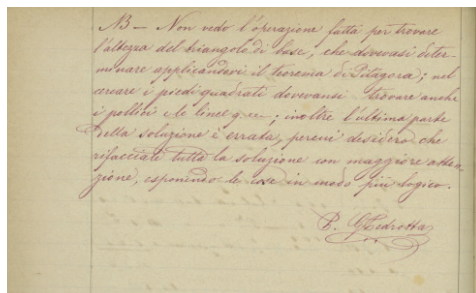 NB — Non vedo l'operazione fatta per trovare
l'altezza del triangolo di base, che dovevasi deter-
minare applicandovi il teorema di Pitagora; nel
cercare i piedi quadrati dovevansi trovare anche
i pollici e le linee q.; inoltre l'ultima parte
della soluzione è errata, perciò desidero che
rifacciate tutta la soluzione con maggiore atten-
zione, esponendo le cose in modo più logico.